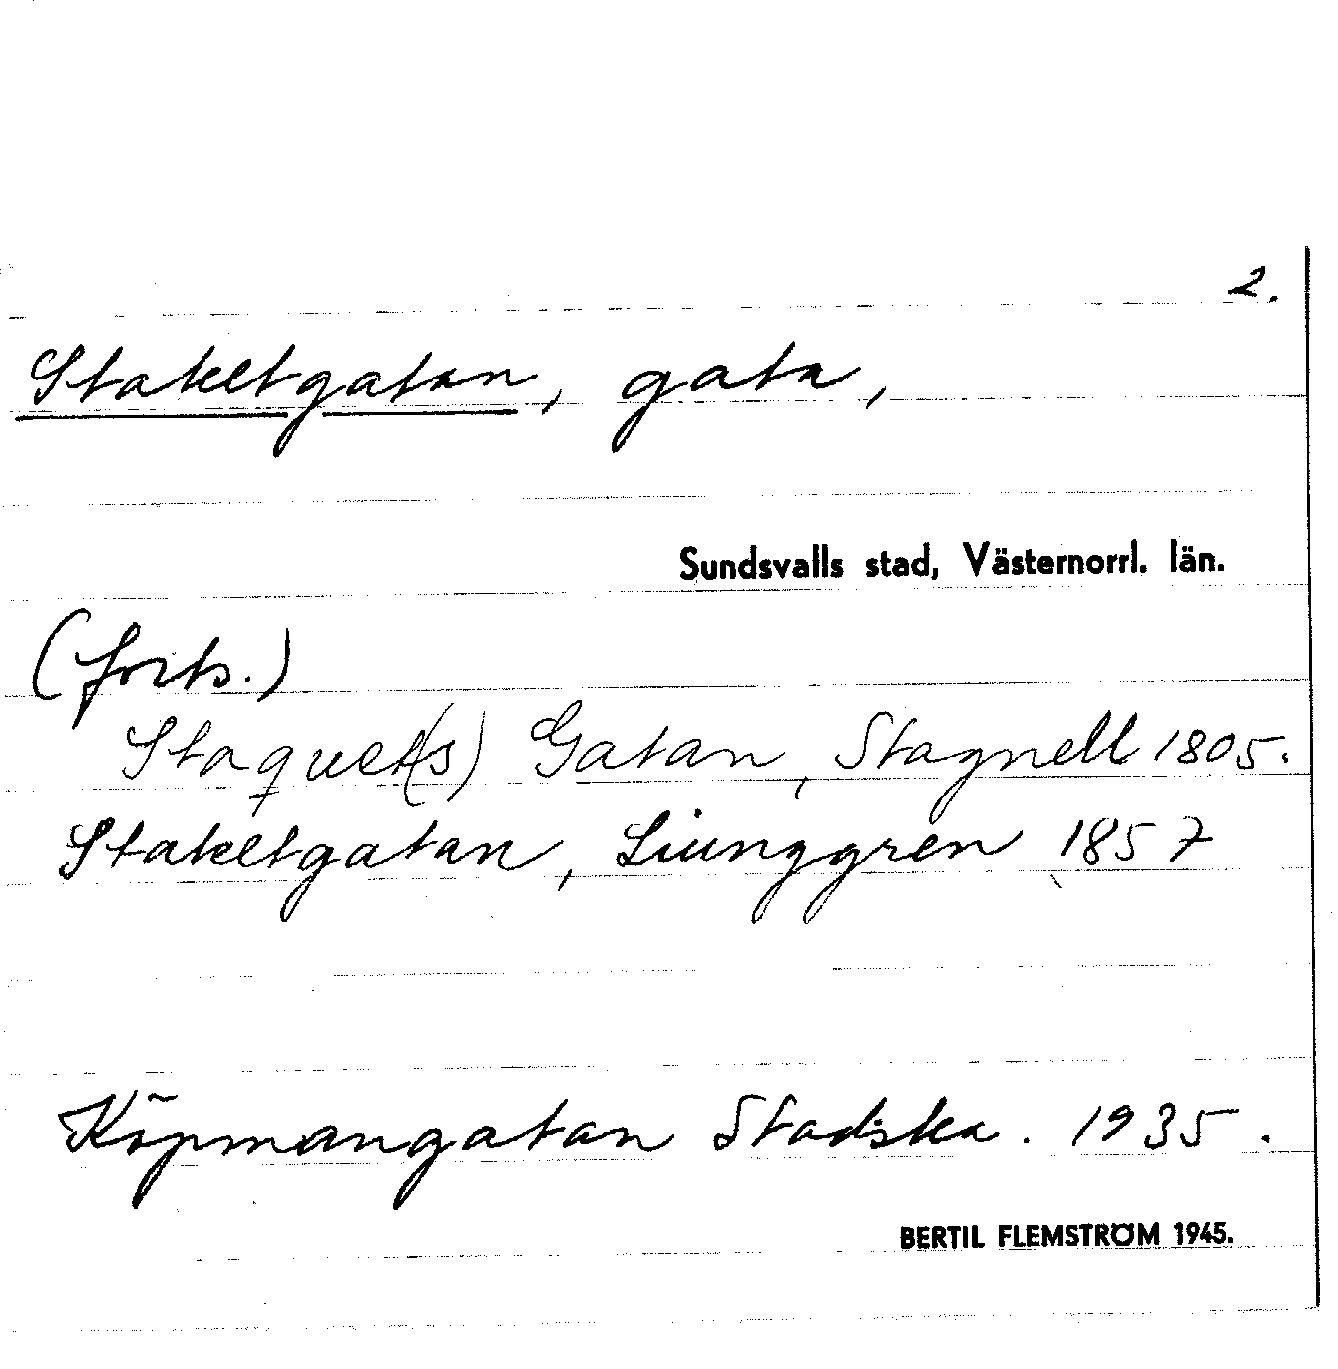 2.
Staketgatan, gata,
Sundsvalls stad, Västernorrl. län.
(forts.)
Staquet(s) Gatan, Stagnell 1805.
Staketgatan, Liunggren 1857
Köpmangatan Stadska. 1935.
BERTIL FLEMSTRÖM 1945.